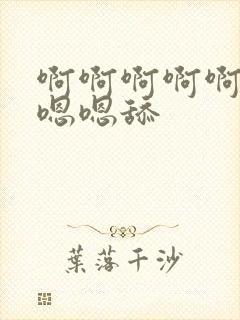 啊啊啊啊啊
嗯嗯舔
葉落千沙